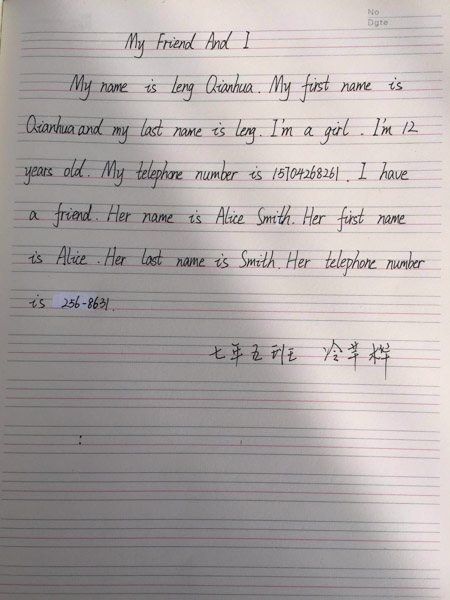 No
Dgte
My Friend And I
My name is Leng Qianhua. My first name is
Qianhua and my last name is Leng. I'm a girl. I'm 12
years old. My telephone number is 15704268261. I have
a friend. Her name is Alice Smith. Her first name
is Alice. Her last name is Smith. Her telephone number
is 256-8631.
七年五班 冷芊桦